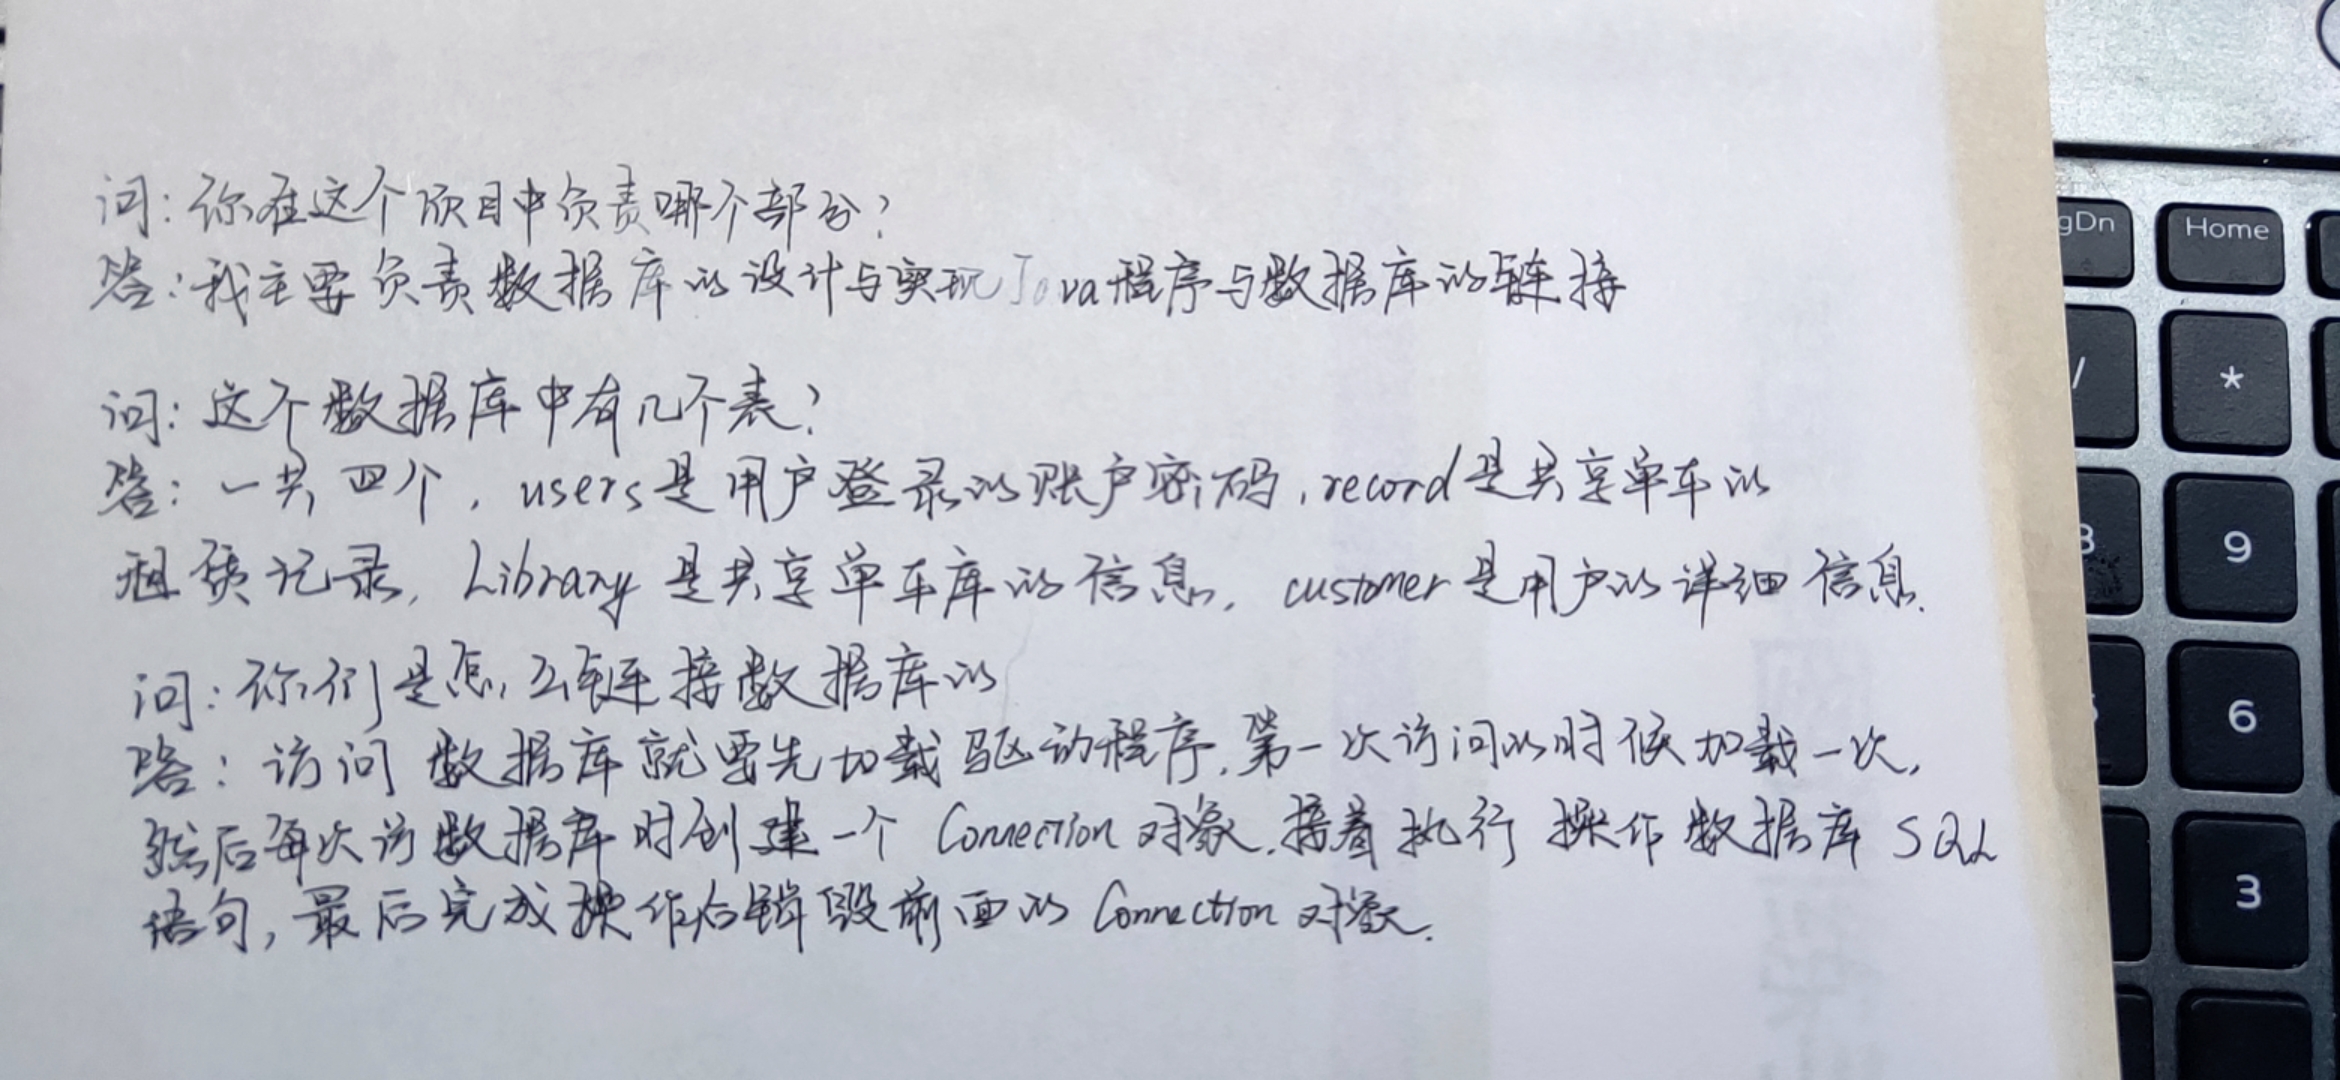 问:你在这个项目中负责哪个部分?
答:我主要负责数据库的设计与实现Java程序与数据库的链接
问:这个数据库中有几个表?
答:一共四个,users是用户登录的账户密码,record是共享单车的
租赁记录,Library是共享单车库的信息,customer是用户的详细信息.
问:你们是怎么链接数据库的
答:访问数据库就要先加载驱动程序,第一次访问的时候加载一次,
然后每次访数据库时创建一个Connection对象,接着执行操作数据库SQL
语句,最后完成操作后销毁前面的Connection对象.
gDn
Home
/
*
9
6
3